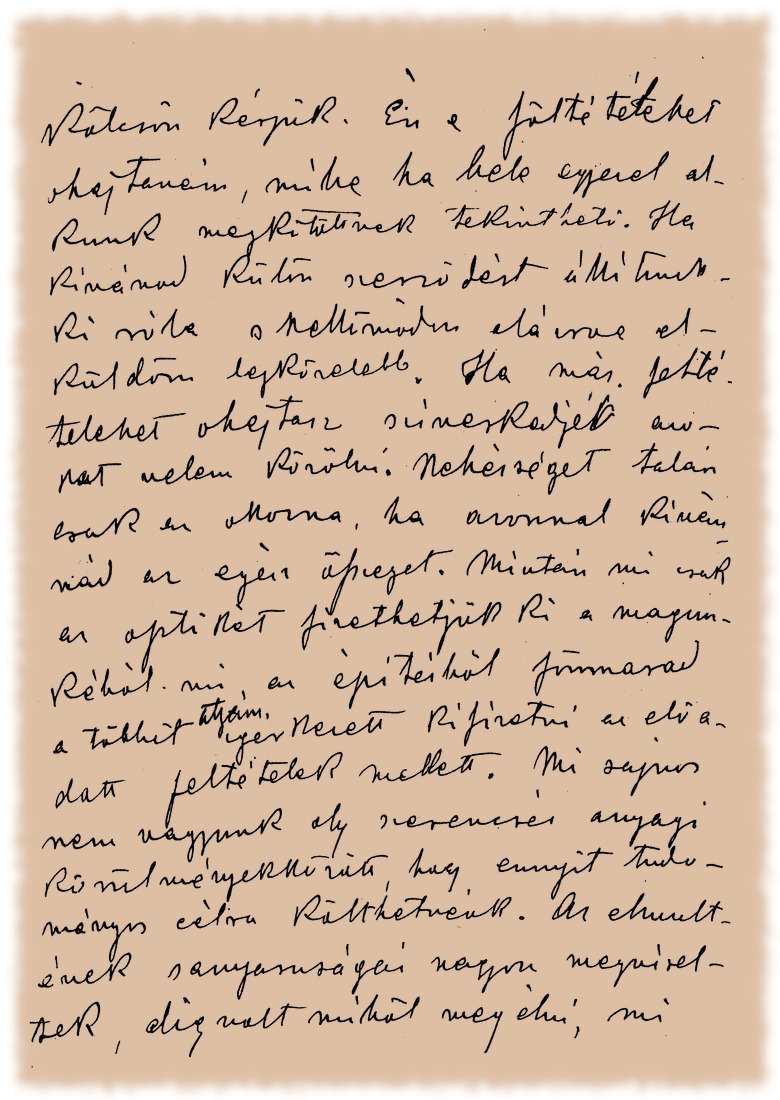 Kölcsön kérjük. Én e föltételeket
ohajtanám, mibe ha bele egyezel al-
kunk megkötöttnek tekintheti. Ha
kivánod külön szerződést állitunk-
ki róla s kellőmódon aláirva el-
küldöm legközelebb. Ha más felté-
teleket ohajtasz sziveskedjék azo-
kat velem közölni. Nehézséget talán
csak az okozna, ha azonnal kiván
nád az egész összeget. Miután mi csak
az optikát fizethetjük ki a magun-
kéból mi az épitésből fönmarad
a többit igerkezett kifizetni az elöa-
atyám,
datt feltételek mellett. Mi sajnos
nem vagyunk oly szerencsés anyagi
körülmények között, hogy ennyit tudo-
mányos célra költhetnénk. Az elmult-
évek sanyaruságai nagyon megvisel-
tek, alig volt miből megélni, mi